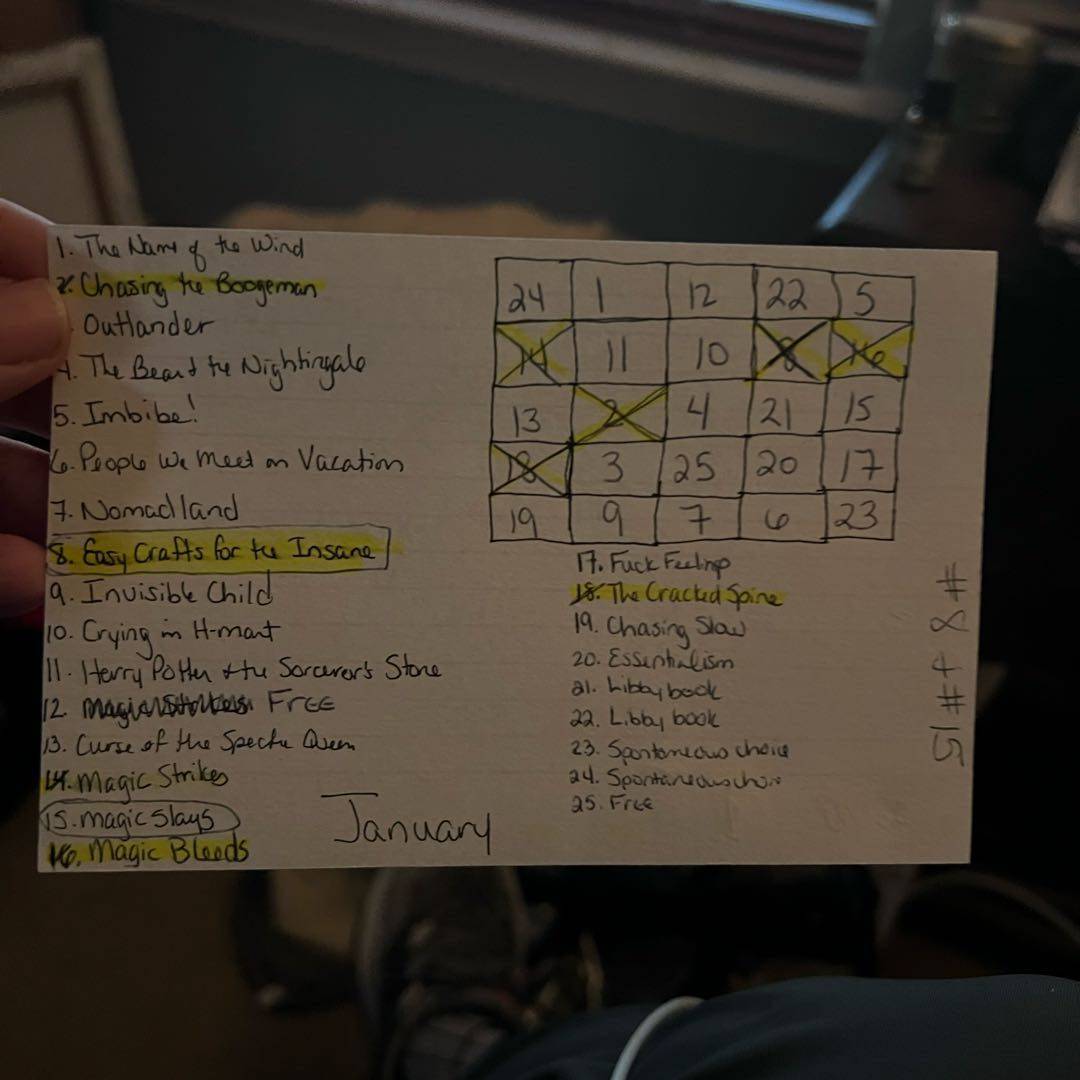 1. The Name of the Wind
2. Chasing the Boogeman
Outlander
4. The Bear & the Nightingale
5. Imbibe!
6. People We Meet on Vacation
7. Nomadland
8. Easy Crafts for the Insane
9. Invisible Child
10. Crying in H-mart
11. Harry Potter & the Sorcerer's Stone
12. Free
13. Curse of the Specter Queen
14. Magic Strikes
15. Magic Slays
16. Magic Bleeds
January
24 1 12 22 5
14 11 10 8 16
13 2 4 21 15
18 3 25 20 17
19 9 7 6 23
17. Fuck Feelings
18. The Cracked Spine
19. Chasing Slow
20. Essentialism
21. Libby book
22. Libby book
23. Spontaneous choice
24. Spontaneous choice
25. Free
# 8 + # 15